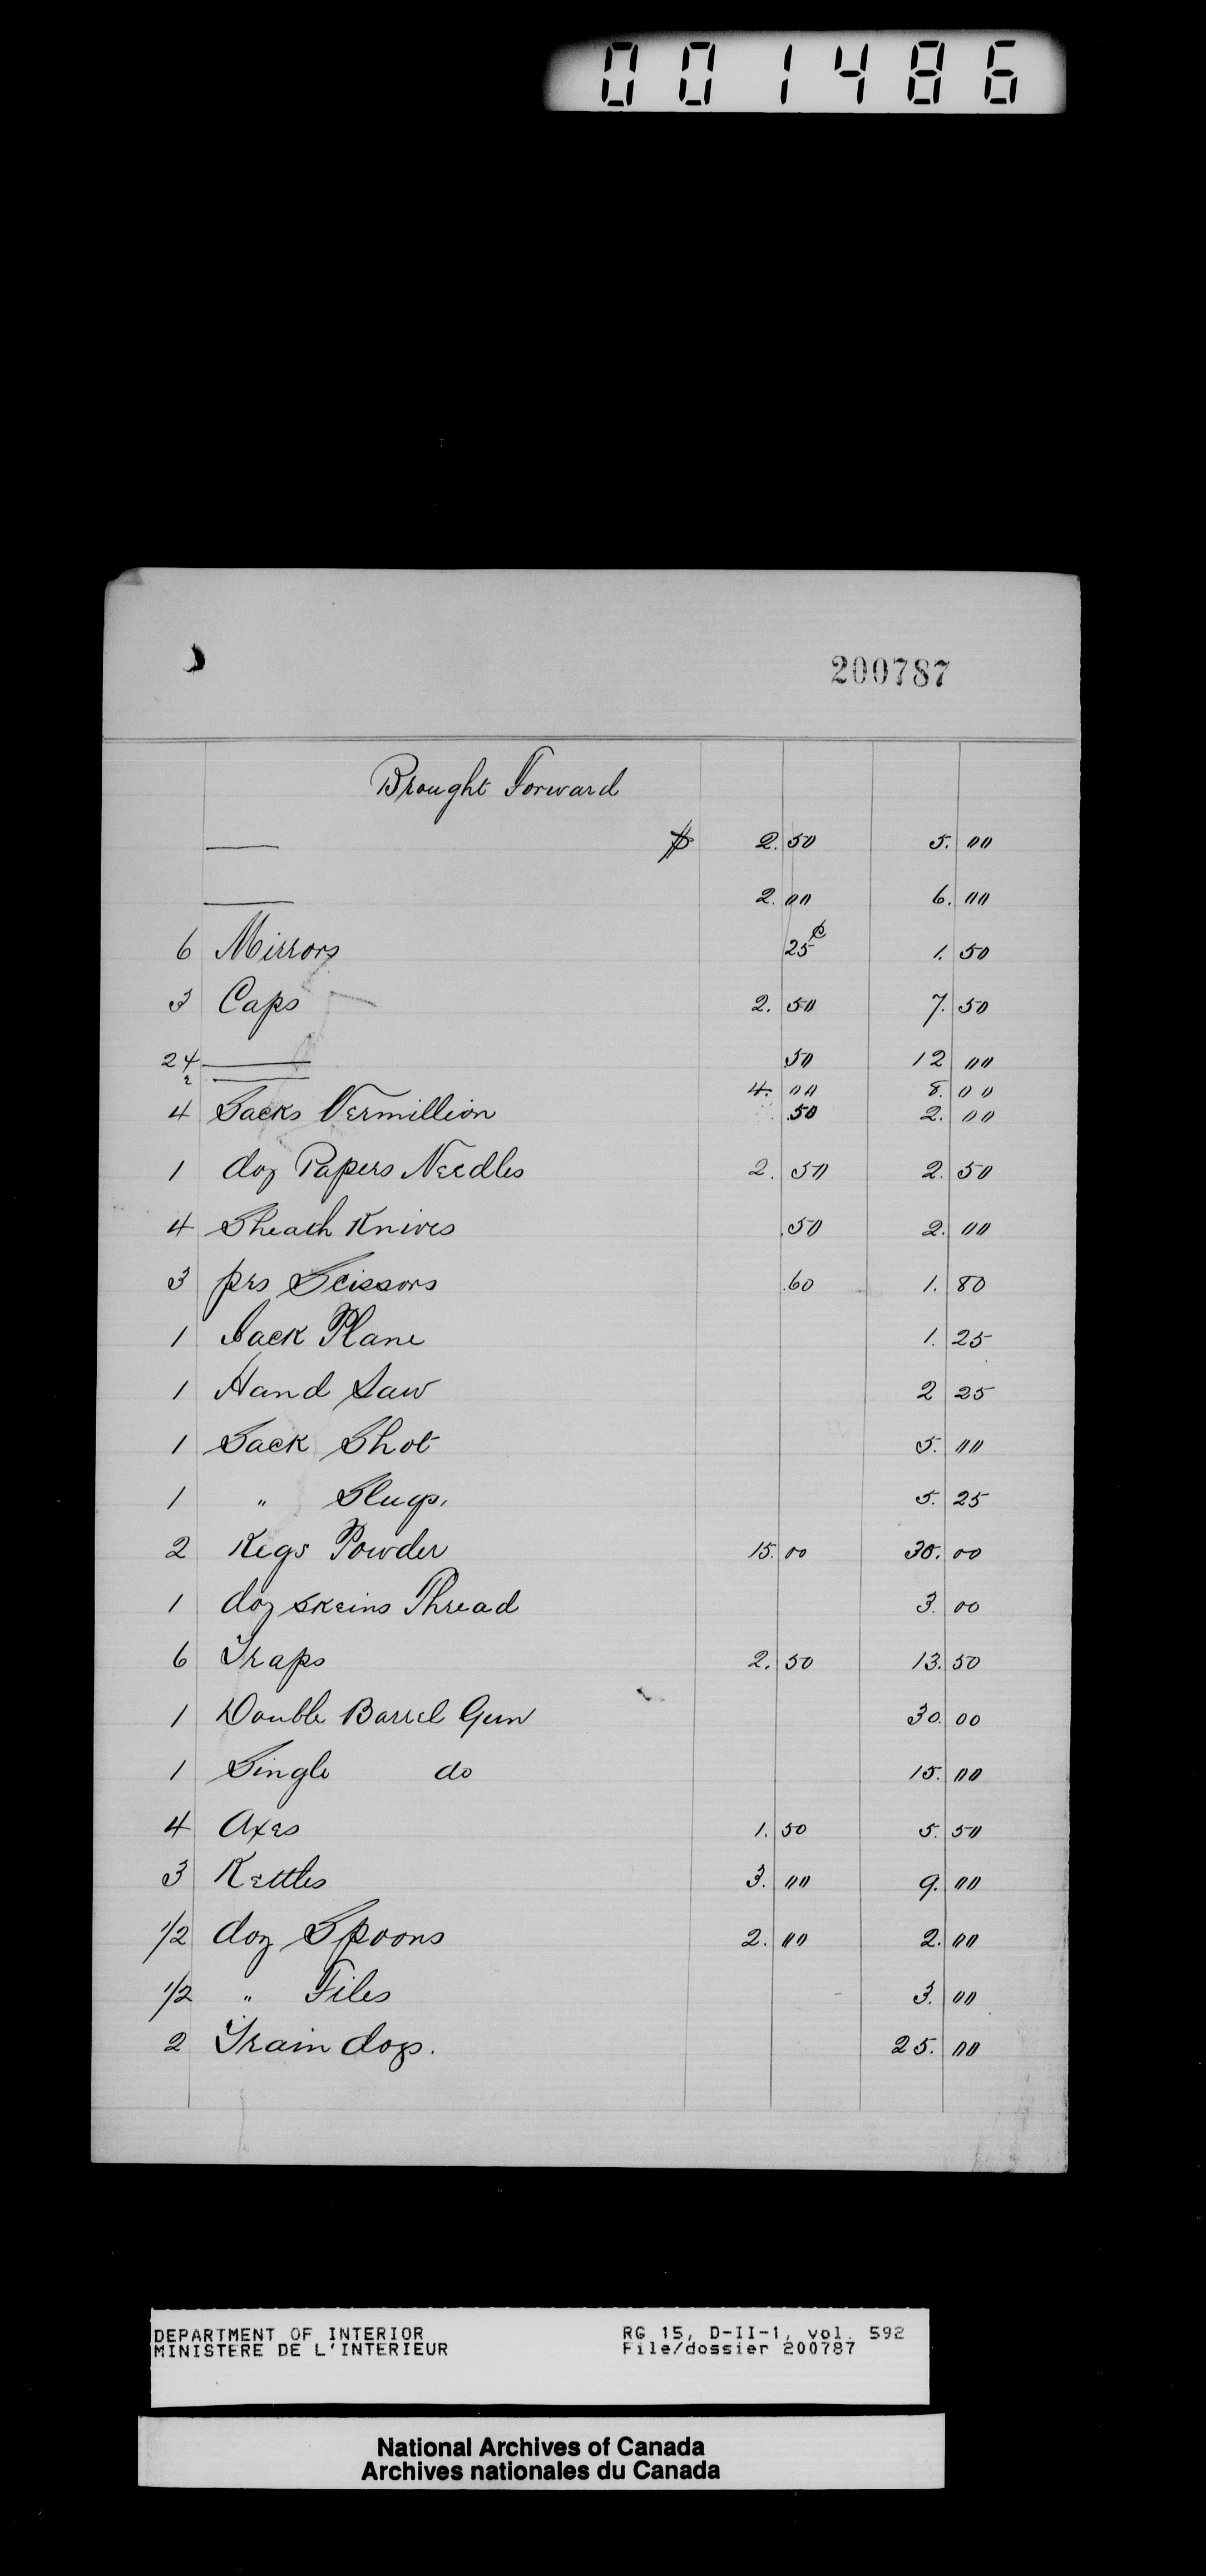 001486
200787
Brought Forward
—— $ 2.50 5.00
—— 2.00 6.00
6 Mirrors 25¢ 1.50
3 Caps 2.50 7.50
24 —— 50 12 00
2 —— 4.00 8.00
4 Sacks Vermillion .50 2.00
1 doz Papers Needles 2.50 2.50
4 Sheath Knives .50 2.00
3 prs Scissors .60 1.80
1 Jack Plane 1.25
1 Hand Saw 2 25
1 Sack Shot 5.00
1 " Slugs. 5.25
2 Kegs Powder 15.00 30.00
1 doz skeins Thread 3.00
6 Traps 2.50 13.50
1 Double Barrel Gun 30.00
1 Single do 15.00
4 Axes 1.50 5.50
3 Kettles 3.00 9.00
1/2 doz Spoons 2.00 2.00
1/2 " Files 3.00
2 Train dogs. 25.00
DEPARTMENT OF INTERIOR RG 15, D-II-1, vol. 592
MINISTERE DE L'INTERIEUR File/dossier 200787
National Archives of Canada
Archives nationales du Canada